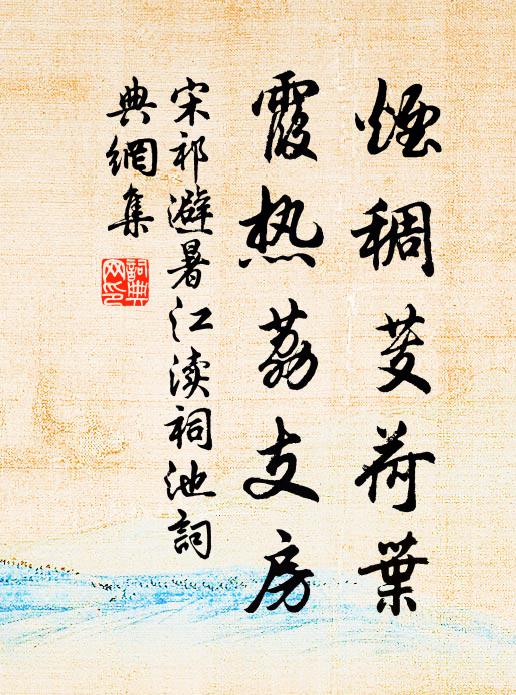 煙稠芰荷葉
霞热荔支房
宋祁避暑江渎祠池詞
典網集
詞典網印